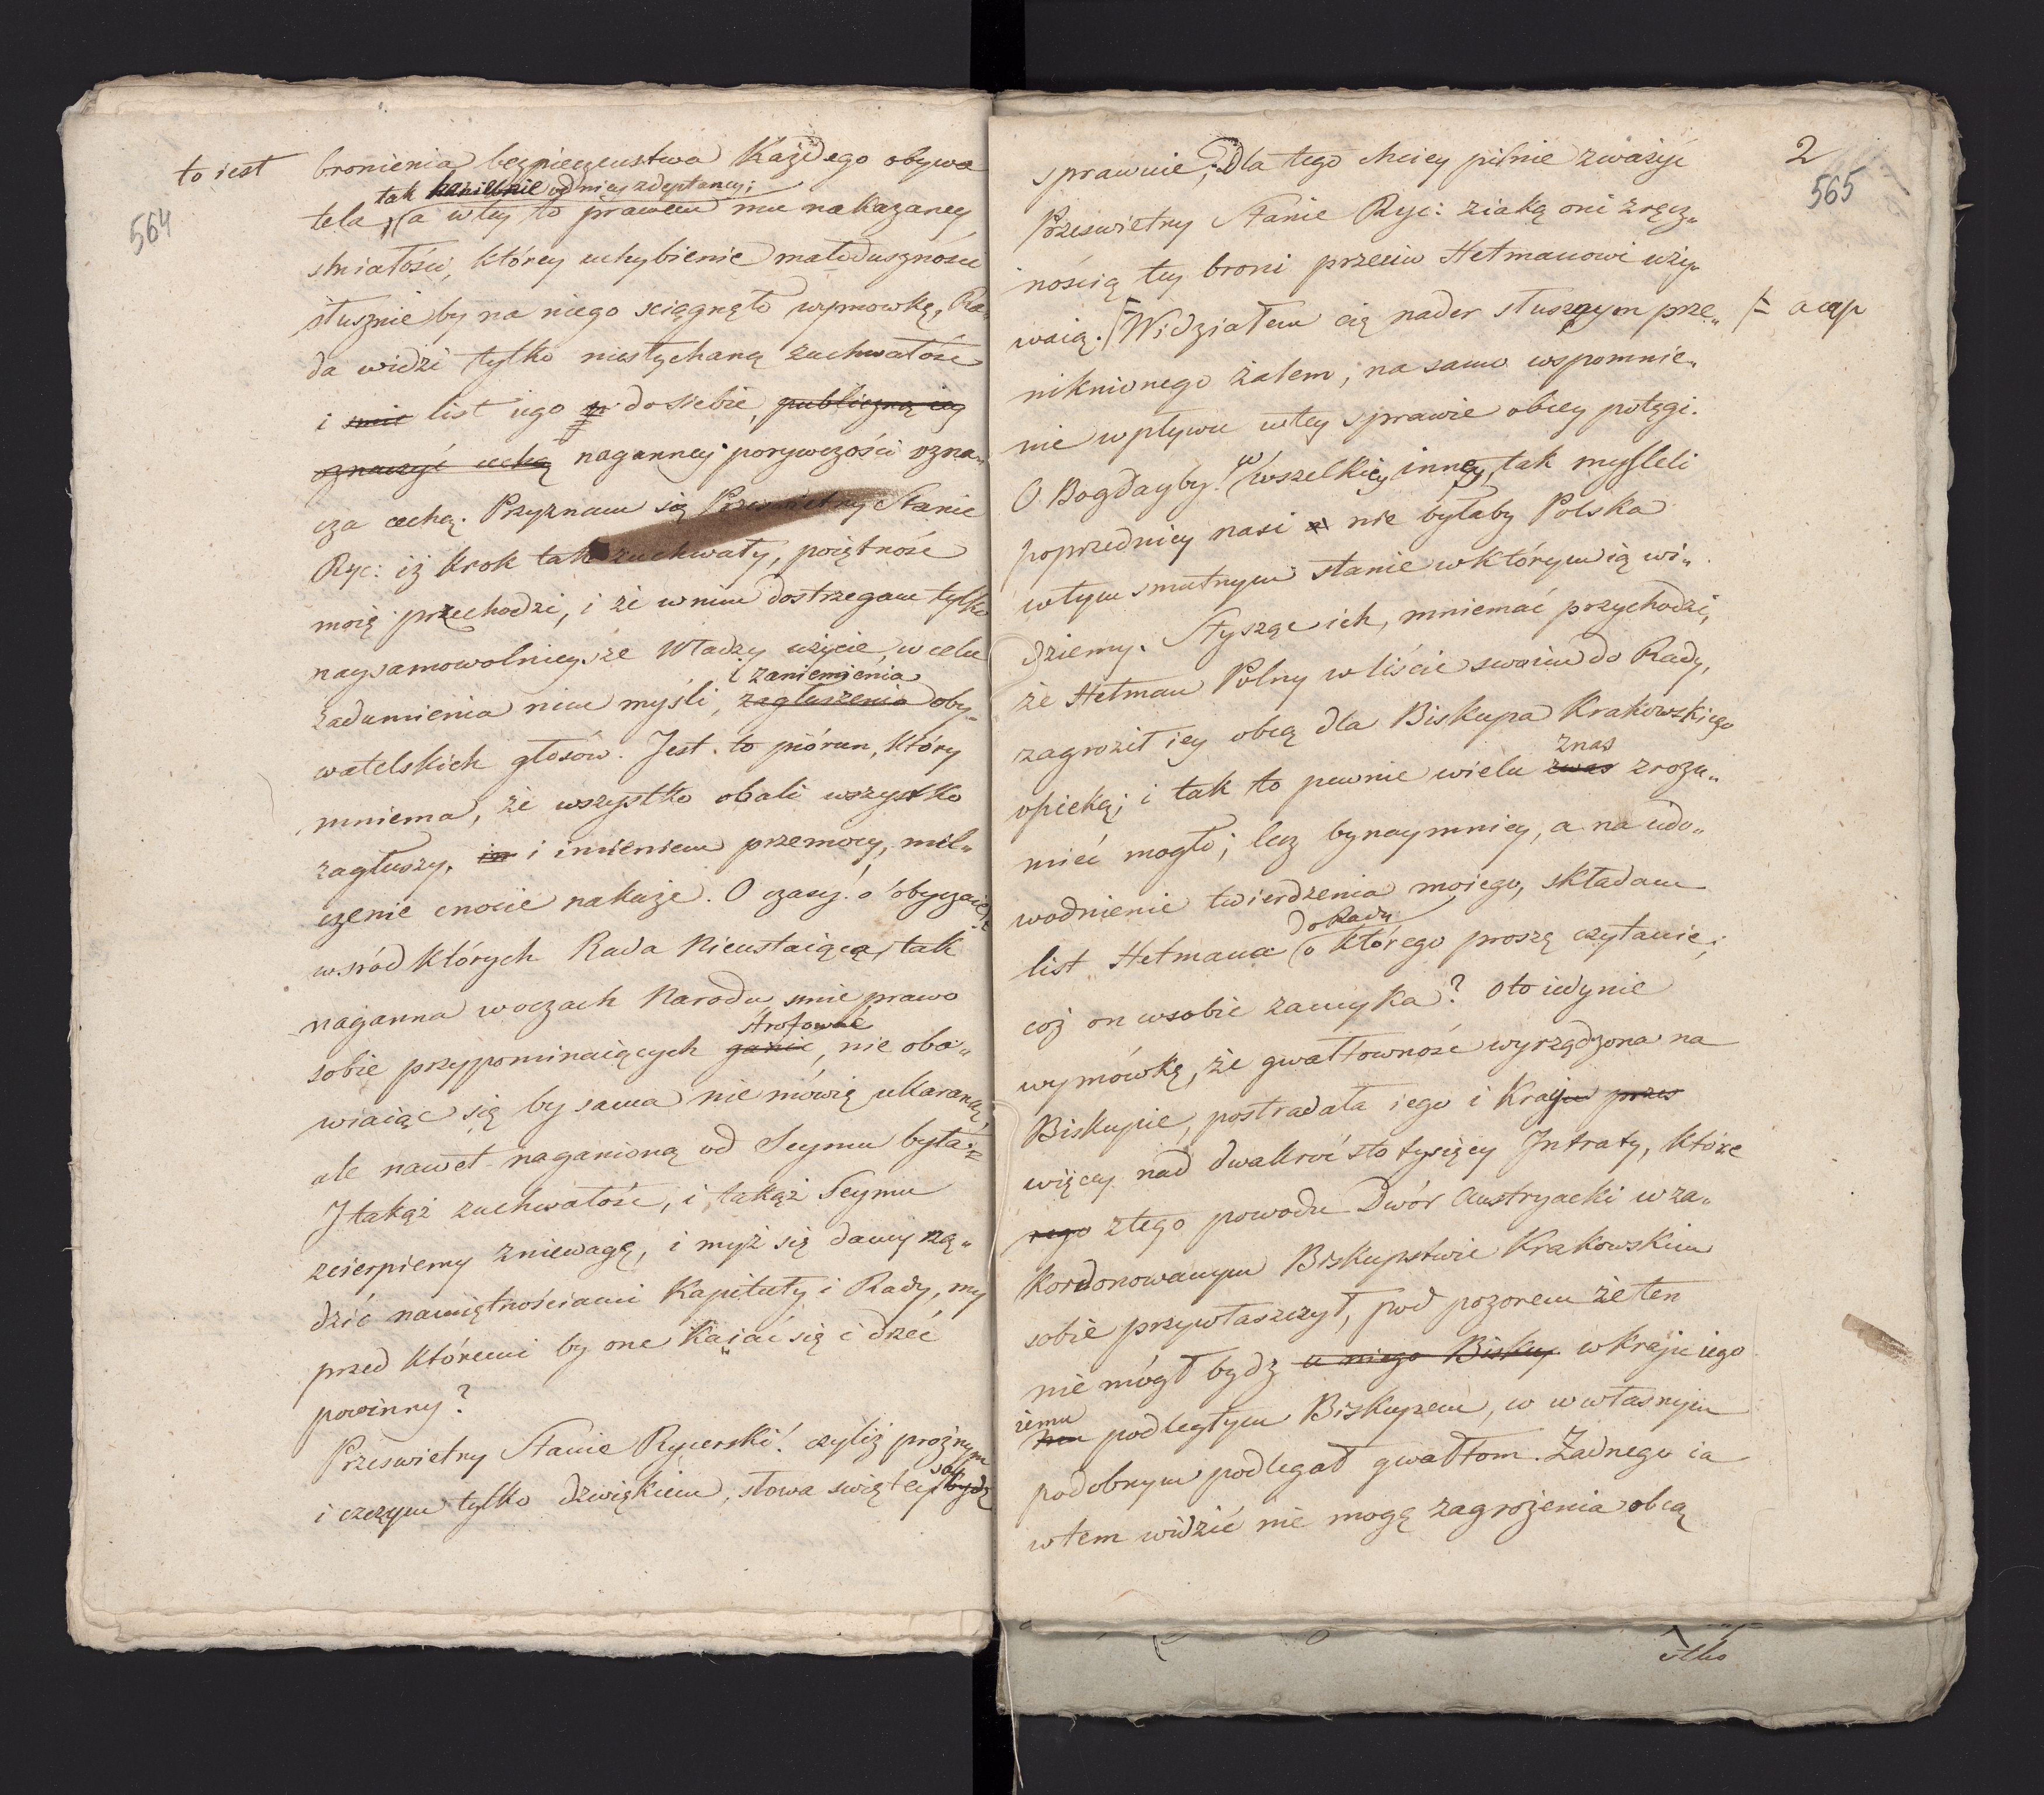 564
to iest bronienia bezpieczenstwa Każdego obywa
tak haniebnie od niey zdeptaney;
tela, (a w tey to prawem mu nakazaney
smiałości, którey uchybienie małoduszności
słusznie by na niego sciągnęło wymowkę, Ra„
da widzi tylko niesłychaną zuchwałość
i smie list iego do siebie, publiczną iey
oznaczyć cechą naganney porywczości ozna„
cza cechą. Przyznam się Prześwietny Stanie
Ryc: iż krok tak zuchwały, poiętność
moię przechodzi, i że w nim dostrzegam tylko
naysamowolnieysze Władzy użycie, w celu
i zaniemienia
zadumienia nim myśli, zagłuszenia oby„
watelskich głosów. Jest to piórun, który
mniema, że wszystko obali wszystko
zagłuszy, im i imieniem przemocy, mil„
czenie cnocie nakaże. O czasy! ó obyczaie!
wsród których Rada Nieustaiąca, tak
naganna w oczach Narodu, smie prawo
strofować
sobie przypominaiących ganić, nie oba„
wiaiąc się by sama nie mówię ukaraną,
ale nawet naganioną od Seymu była.
J takąż zuchwałość, i takąż Seymu
zcierpiemy zniewagę, i myż się damy rzą„
dzić namiętnościami Kapituły i Rady, my
przed któremi by one kaiać się i drżeć
powinny?
Przeswietny Stanie Rycerski! czyliż prożnym
i czczym tylko dzwiękiem, słowa swiętey są bydz
2
565
sprawnie; Dla tego chciey pilnie zważyć
Przeswietny Stanie Ryc: z iaką oni zręcz„
nością tey broni przeciw Hetmanowi uży„
waią. Widziałem cię nader słusznym prze„ a cap
niknionego żalem, na samo wspomnie„
nie wpływu w tey sprawie obcey potęgi.
O Bogdayby! w wszelkiey inney, tak mysleli
poprzednicy nasi nie byłaby Polska
w tym smutnym stanie w którym ią wi„
dziemy. Słysząc ich, mniemać przychodzi,
że Hetman Polny w liście swoim do Rady,
zagroził iey obcą dla Biskupa Krakowskiego
znas
opieką; i tak to pewnie wielu zwas zrozu„
mieć mogło; lecz bynaymniey, a na udo„
wodnienie twierdzenia moiego, składam
do Rady
list Hetmana o którego proszę czytanie;
coż on w sobie zamyka? Oto iedynie
wymówkę, że gwałtowność wyrządzona na
Biskupie, postradała iego i Kraju przes
więcey nad dwakroć sto tysięcy Jntraty, które
rego ztego powodu Dwór Austryacki w za„
kordonowanym Biskupstwie Krakowskim
sobie przywłaszczył, pod pozorem że ten
nie mógł bydź u niego Biskup w kraju iego
iemu
mu podległym Biskupem, w w własnym
podobnym podlegał gwałtom. Żadnego ia
w tem widzić nie mogę zagrożenia obcą